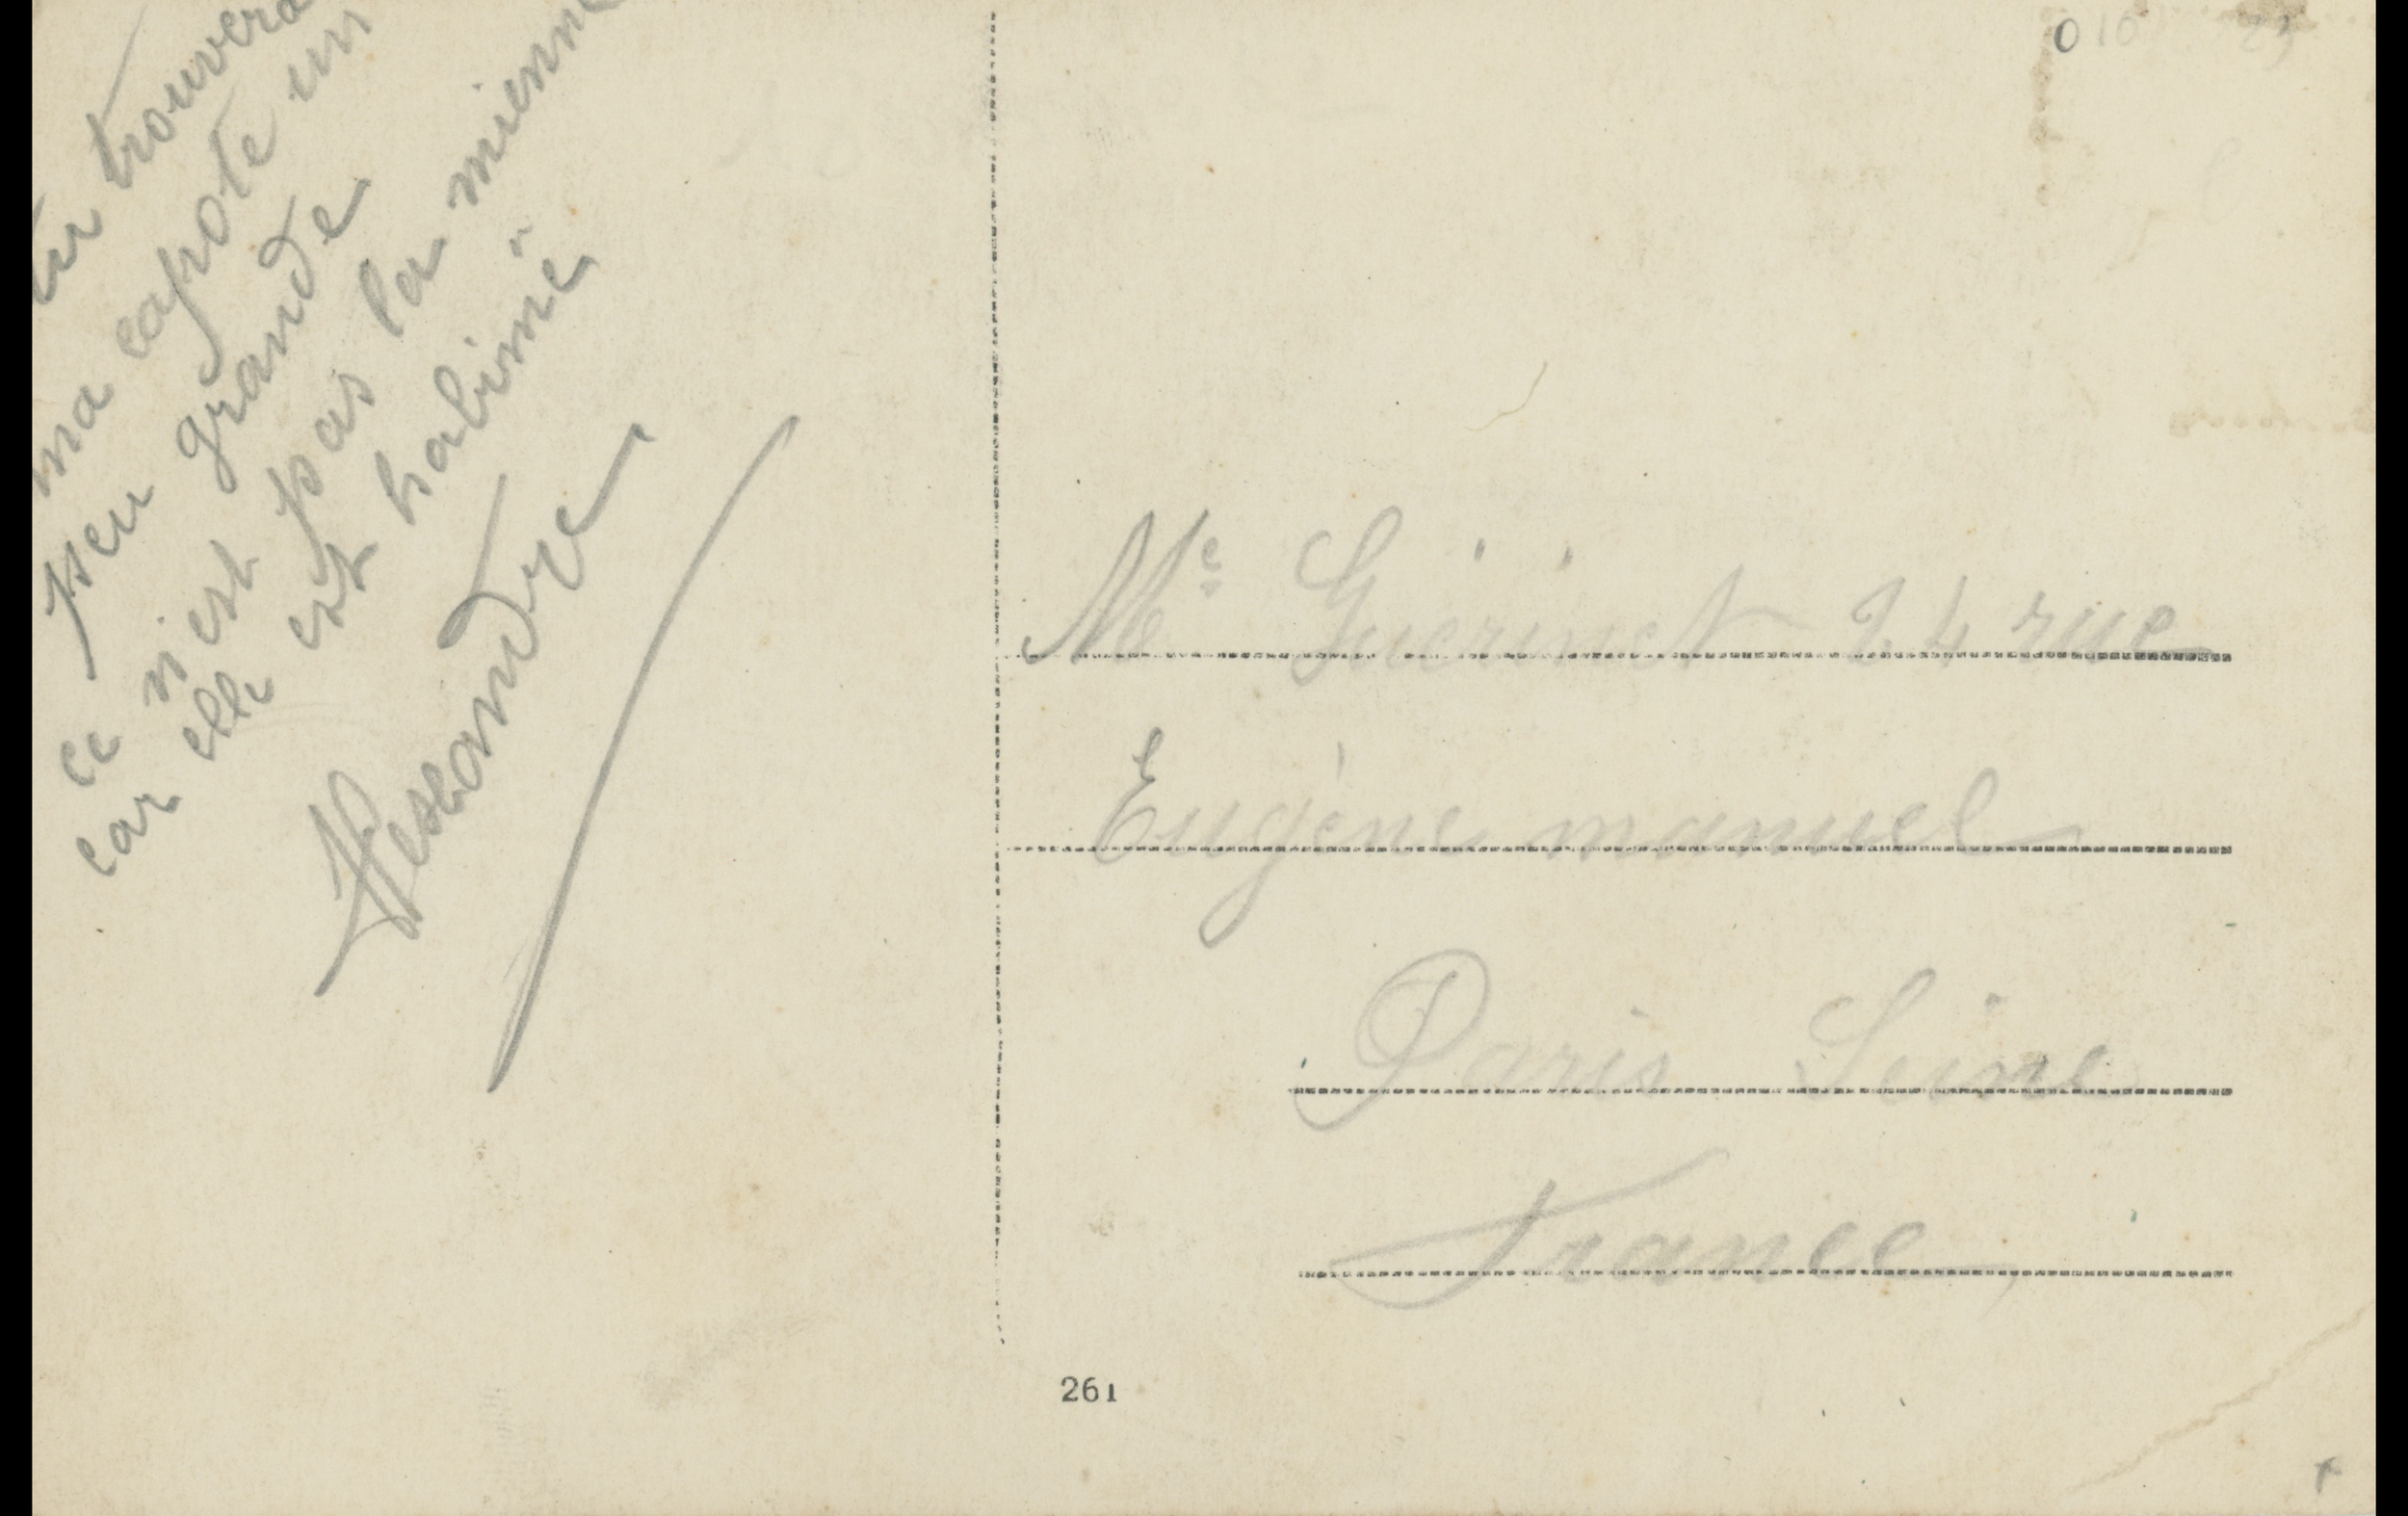 tu trouvera
ma capote un
peu grande
ce n'est pas la mienne
car elle est habimé
Alexandre
Me Guérinet 24 rue
Eugène manuel
Paris Seine
France
261